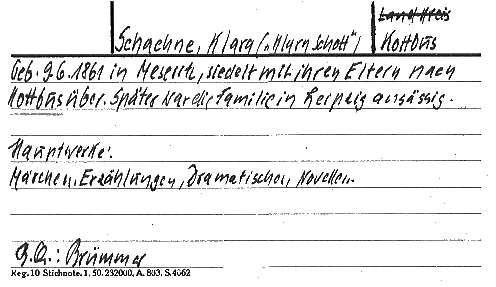 Land Kreis
Schachne, Klara („Klara Schott“) Kottbus
Geb. 9.6.1861 in Meseritz, siedelt mit ihren Eltern nach
Kottbus über. Später war die Familie in Leipzig ansässig.
Hauptwerke:
Märchen, Erzählungen, Dramatisches, Novellen.
Q.A.: Brümmer
Reg. 10 Stichnote. 1, 50. 232000, A. 803. S. 4062